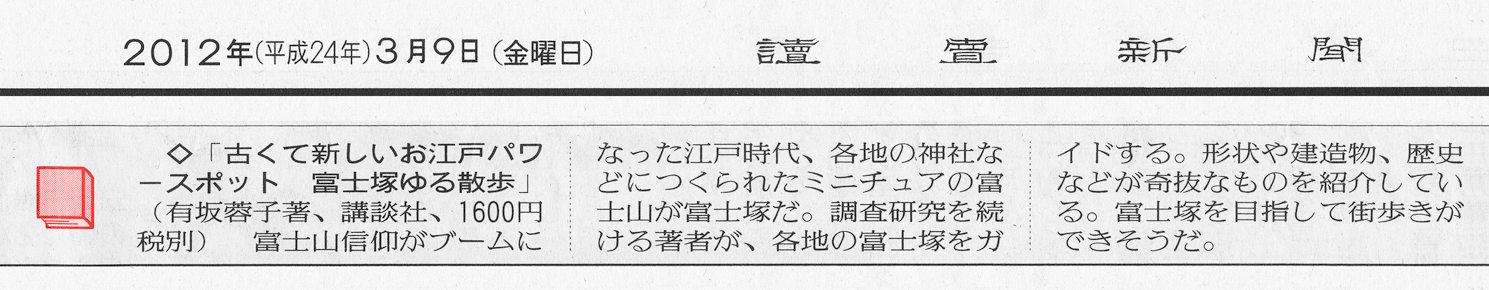 2012年(平成24年)3月9日(金曜日)
讀賣新聞
◇「古くて新しいお江戸パワ
ースポット　富士塚ゆる散歩」
（有坂蓉子著、講談社、1600円
税別）　富士山信仰がブームに
なった江戸時代、各地の神社な
どにつくられたミニチュアの富
士山が富士塚だ。調査研究を続
ける著者が、各地の富士塚をガ
イドする。形状や建造物、歴史
などが奇抜なものを紹介してい
る。富士塚を目指して街歩きが
できそうだ。